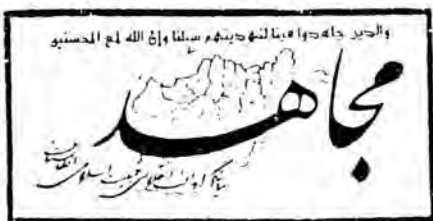 والذين جاهدوا فينا لنهدينهم سبلنا وإن الله لمع المحسنين
مجاهد
بیانگر انقلابی جمعیت اسلامی افغانستان